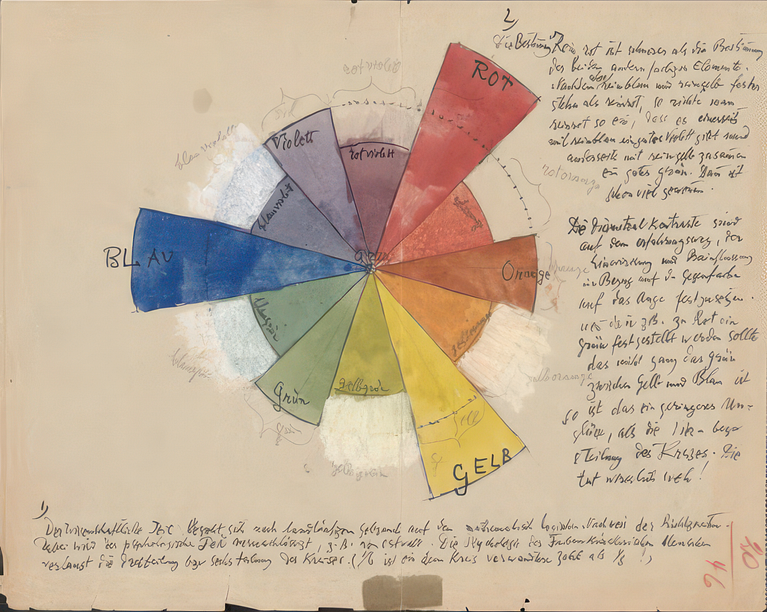 2)
Die Bestimmung Rein rot ist schwerer als die Bestimmung
der beiden andern farbigen Elemente.
Nachdem aber reinblau und reingelb fester
stehn als reinrot, so richte man
reinrot so ein, dass es einerseits
mit reinblau ein gutes Violett gibt und
anderseits mit reingelb zusammen
ein gutes grün. Dann ist
schon viel gewonnen.
Die Diametral Kontraste sind
auf dem Erfahrungsweg, der
und Beeinflussung
in Bezug auf Gegenfarben
auf das Auge festzusetzen.
z.B. zu Rot ein
grün festgestellt werden sollte
das nicht ganz das grün
zwischen Gelb und Blau ist
so ist das ein geringeres Un-
glück, als die
teilung des Kreises. Die
tut wirklich weh!
ROT
rotorange
Orange
orange
gelborange
gelborange
GELB
gelb
gelbgrün
gelbgrün
Grün
grün
blaugrün
blaugrün
BLAU
blauviolett
blauviolett
Violett
rotviolett
rotviolett
Grau
1)
Der wissenschaftliche Teil sich nach auf den mathematisch Nachweis der Richtigkeiten.
Dabei wird der psychologische Teil vernachlässigt, z.B. von Ostwald. Die Psychologie des Farben Menschen
verlangt die Dreiteilung bzw sechsteilung des Kreises. (1/6 ist ein dem Kreis verwandtere Zahl als 1/8 !)